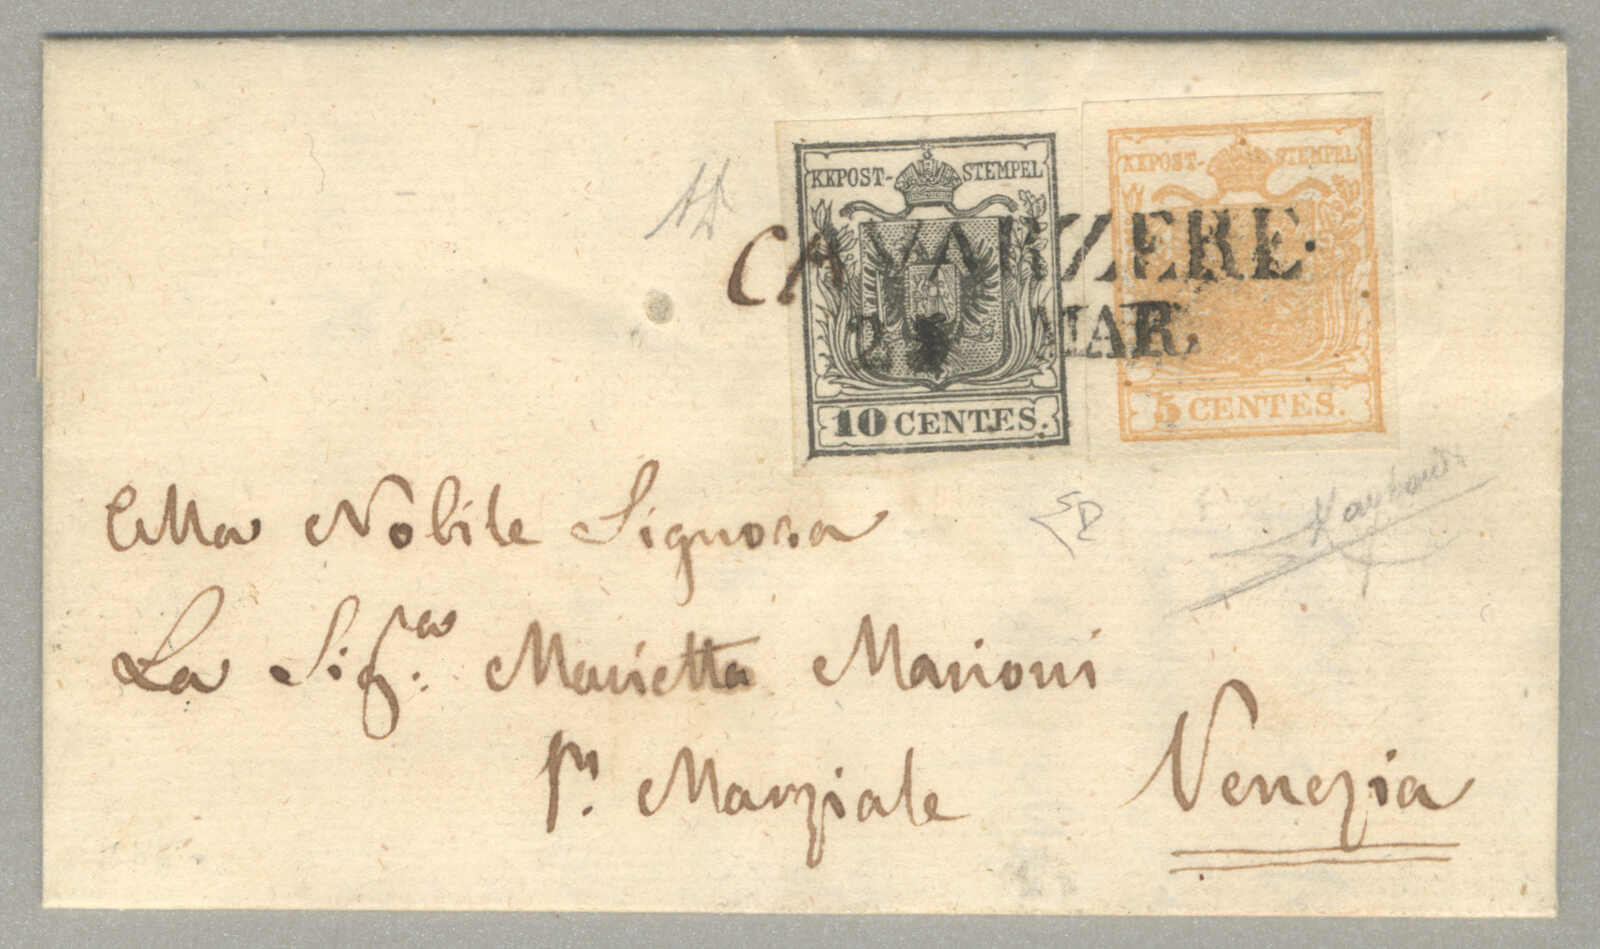 KKPOST-STEMPEL
10 CENTES.
KKPOST-STEMPEL
5 CENTES.
CAVARZERE.
MAR.
Alla Nobile Signora
La Sig.ra Marietta Marioni
Sn. Marziale Venezia